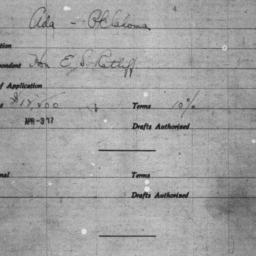 Ada - Oklahoma
tion
pondent Hon E. S. Ratliff
f Application
$17,500 Terms 10%
APR -3 '17 Drafts Authorized
nal Terms
Drafts Authorized